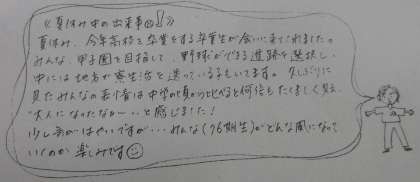 《夏休み中の出来事》
夏休み、今年高校を卒業をする卒業生が会いに来てくれました。
みんな、甲子園を目指して、野球ができる進路を選択し、
中には地方で寮生活を送っている子もいてます。久しぶりに
見たみんなの表情は中学の頃と比べると何倍もたくましく見え、
"大人になったなぁ〜"と感じました!
少し気がはやいですが…みんな(76期生)がどんな風になって
いくのか楽しみです